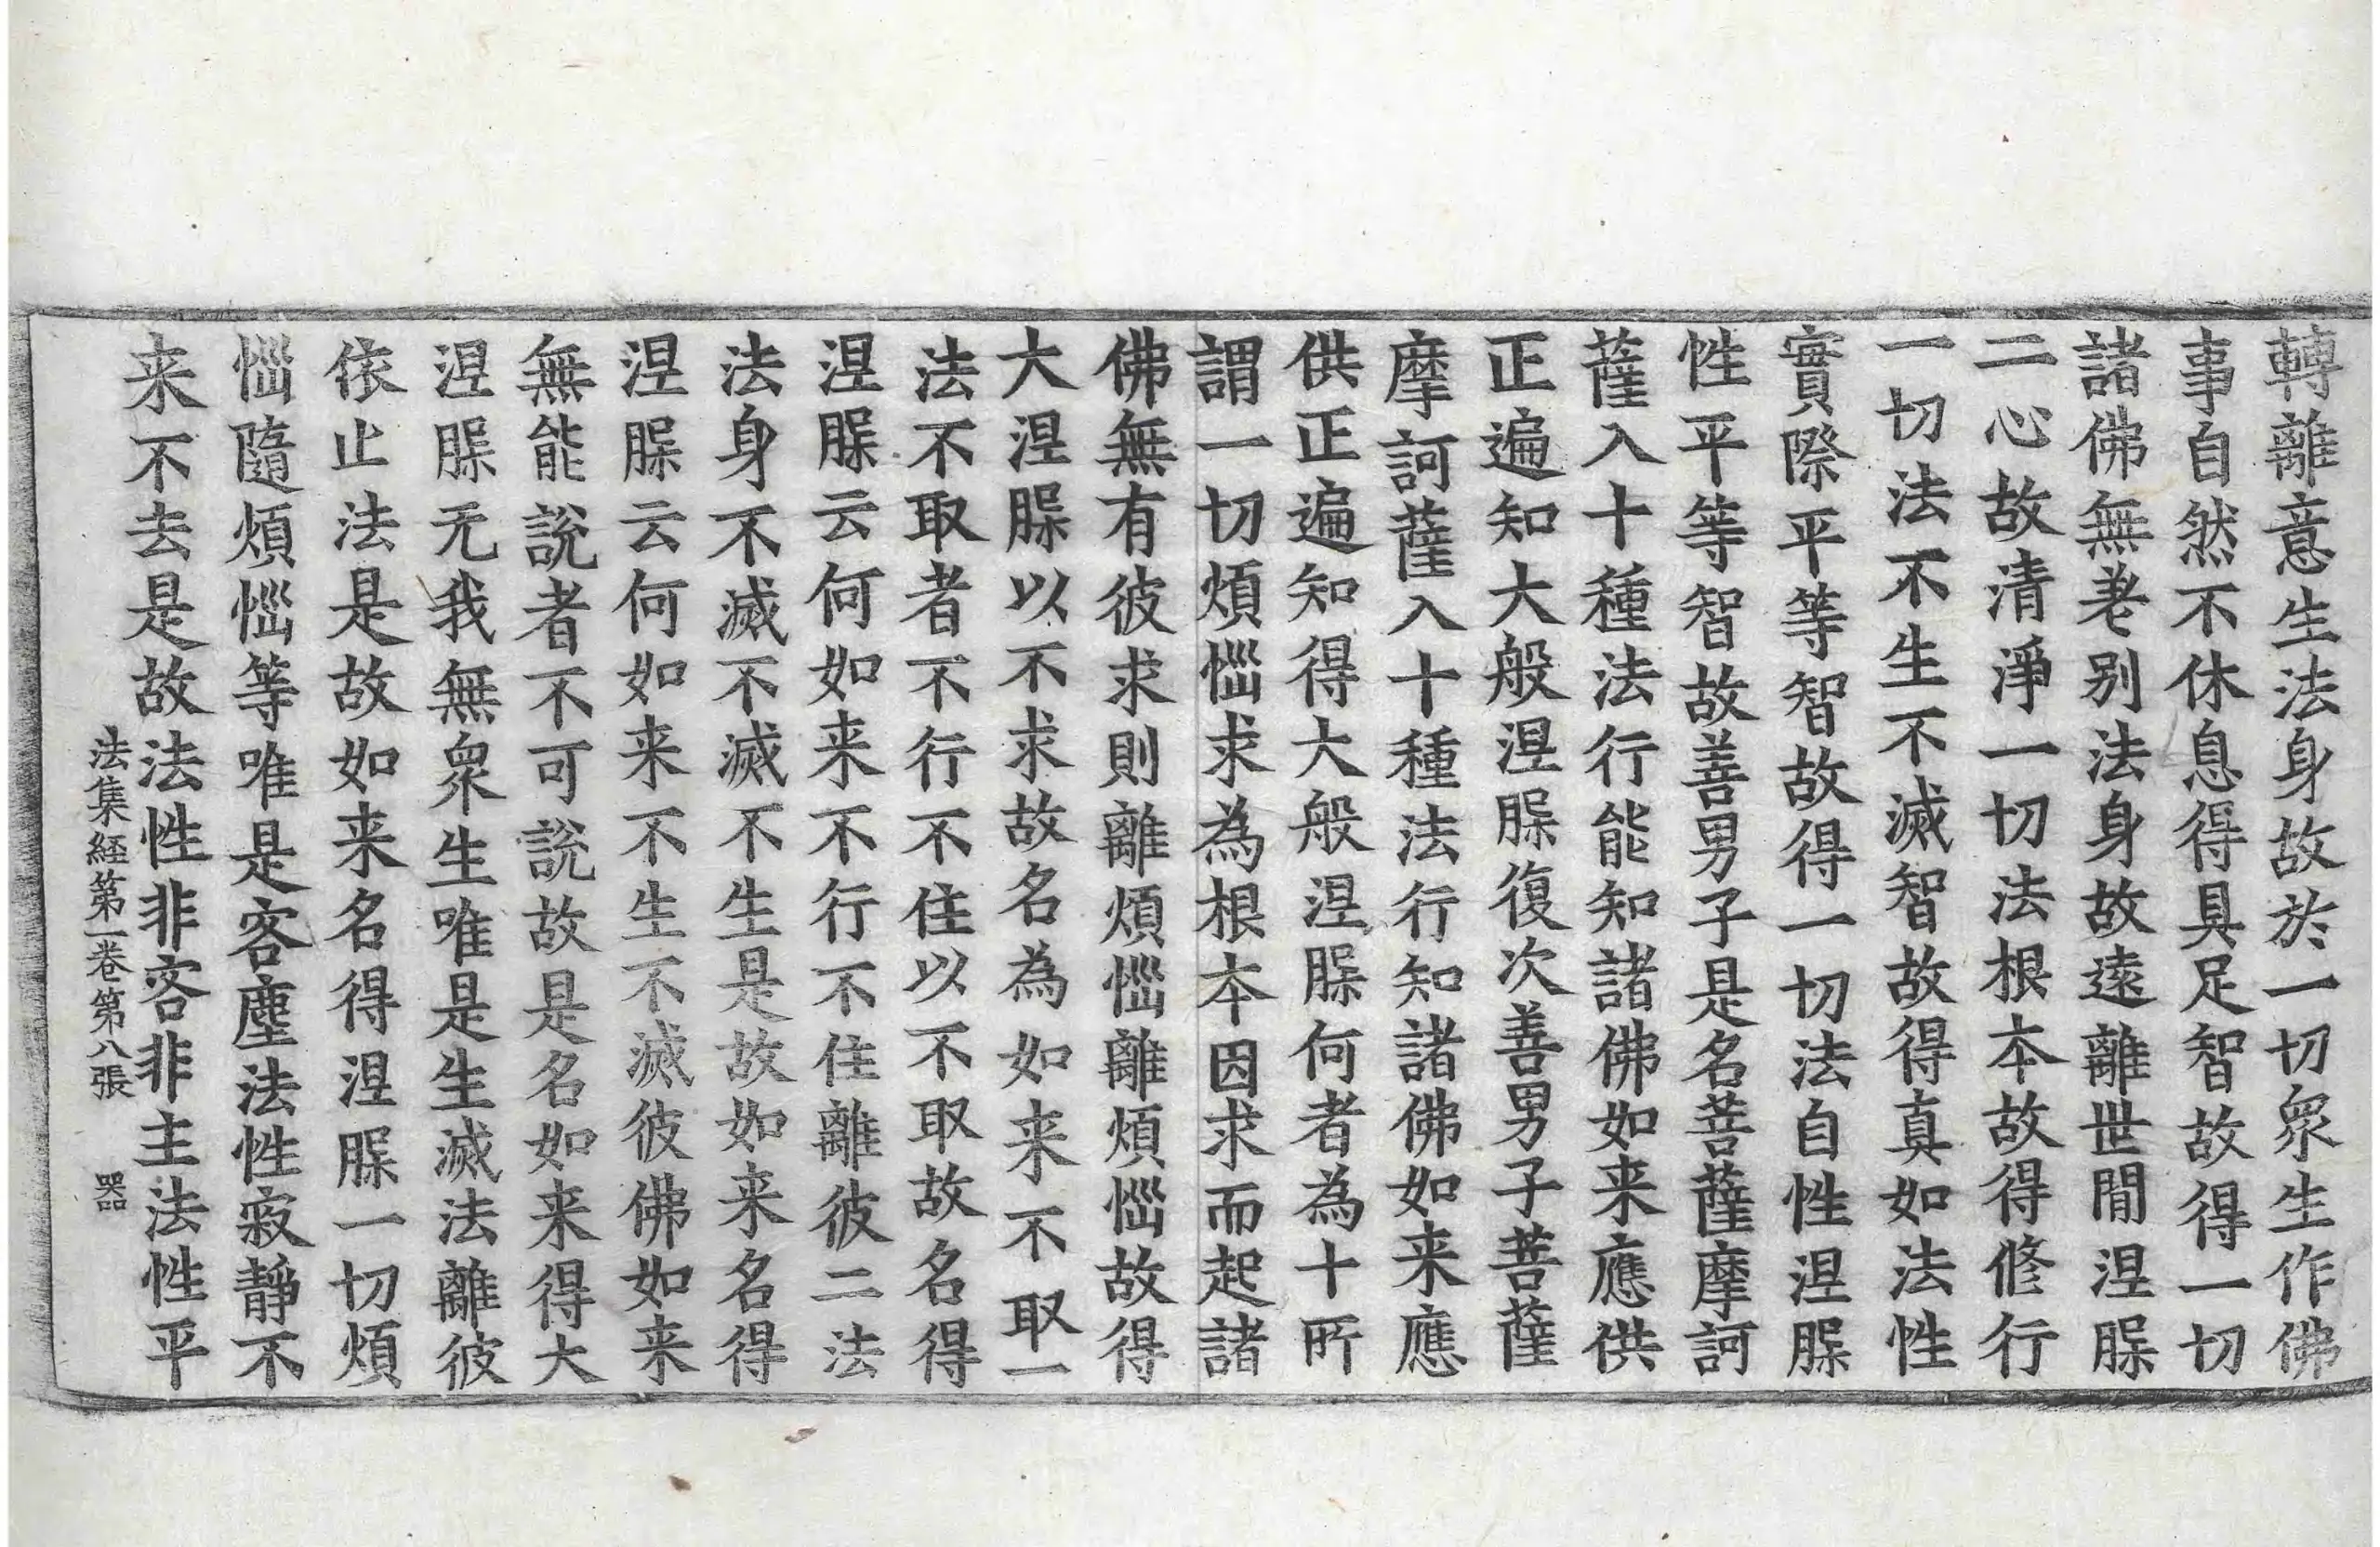 轉離意生法身故於一切衆生作佛
事自然不休息得具足智故得一切
諸佛無差别法身故遠離世間涅槃
二心故清淨一切法根本故得修行
一切法不生不滅智故得真如法性
實際平等智故得一切法自性涅槃
性平等智故善男子是名菩薩摩訶
薩入十種法行能知諸佛如来應供
正遍知大般涅槃復次善男子菩薩
摩訶薩入十種法行知諸佛如来應
供正遍知得大般涅槃何者為十所
謂一切煩惱求為根本因求而起諸
佛無有彼求則離煩惱離煩惱故得
大涅槃以不求故名為如来不取一
法不取者不行不住以不取故名得
涅槃云何如来不行不住離彼二法
法身不滅不滅不生是故如来名得
涅槃云何如来不生不滅彼佛如来
無能說者不可說故是名如来得大
涅槃无我無衆生唯是生滅法離彼
依止法是故如来名得涅槃一切煩
惱隨煩惱等唯是客塵法性寂靜不
来不去是故法性非客非主法性平
法集経第一卷第八張 器